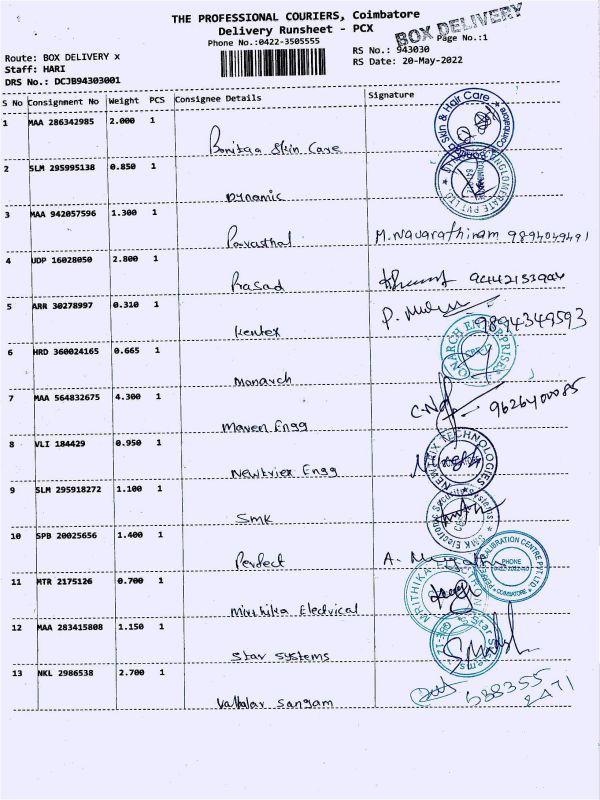 THE PROFESSIONAL COURIERS, Coimbatore
Delivery Runsheet - PCX
BOX DELIVERY
Phone No.:0422-3505555
Page No.:1
Route: BOX DELIVERY x
RS No.: 943030
Staff: HARI
RS Date: 20-May-2022
DRS No.: DCJB94303001
S No Consignment No Weight PCS Consignee Details Signature
1 MAA 286342985 2.000 1
Skin & Hair Care
Coimbatore
2 SLM 295995138 0.850 1
Dynamic
3 MAA 942057596 1.300 1
M. Navarathinam 9894049491
4 UDP 16028050 2.800 1
Prasad
5 ARR 30278997 0.310 1
Kentex
9894349593
6 HRD 360024165 0.665 1
Monarch
7 MAA 564832675 4.300 1
9626400085
Maven Engg
8 VLI 184429 0.950 1
NEWTRIX TECHNOLOGIES
Newtrix Engg
9 SLM 295918272 1.100 1
SMK Electronic Security Systems
SMK
10 SPB 20025656 1.400 1
CALIBRATION CENTRE PVT LTD
PHONE
COIMBATORE
Perfect
11 MTR 2175126 0.700 1
MRITHIKA
Mrithika Electrical
12 MAA 283415808 1.150 1
Star Systems
Star Systems
13 NKL 2986538 2.700 1
638355
Vallalar Sangam